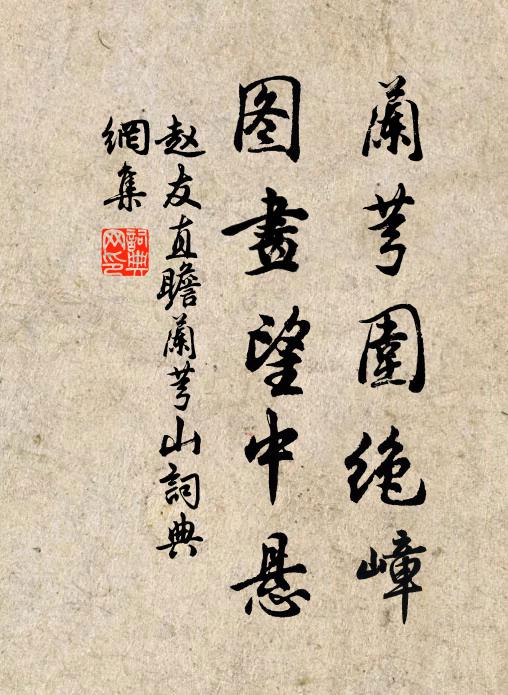 蘭芎圍絶嶂
图畫望中悬
赵友直瞻蘭芎山詞典
網集
詞典
网印